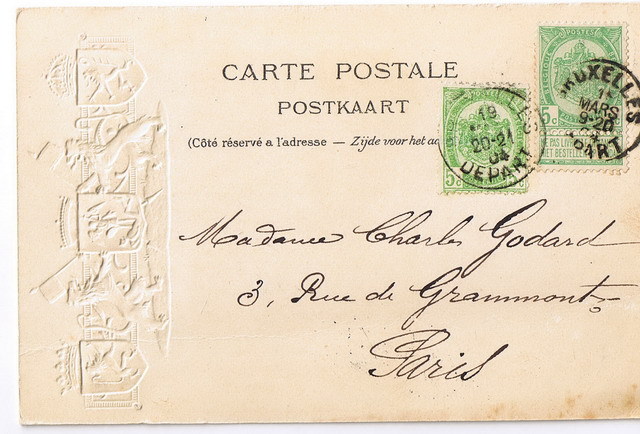 CARTE POSTALE
POSTKAART
(Côté réservé a l'adresse — Zijde voor het
POSTES
5c
BRUXELLES
MARS
DEPART
19
20-21
04
DEPART
5c 5c
Madame Charles Godard
3, Rue de Grammont
Paris